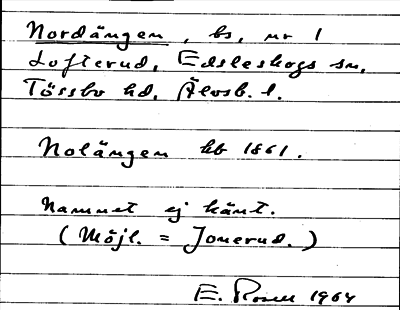 Nordängen, bs, nr 1
Lofterud, Edsleskogs sn,
Tössbo hd, Älvsb. l.
Nolängen hb 1861.
Namnet ej känt.
(Möjl. = Jonerud.)
E. Rosell 1964